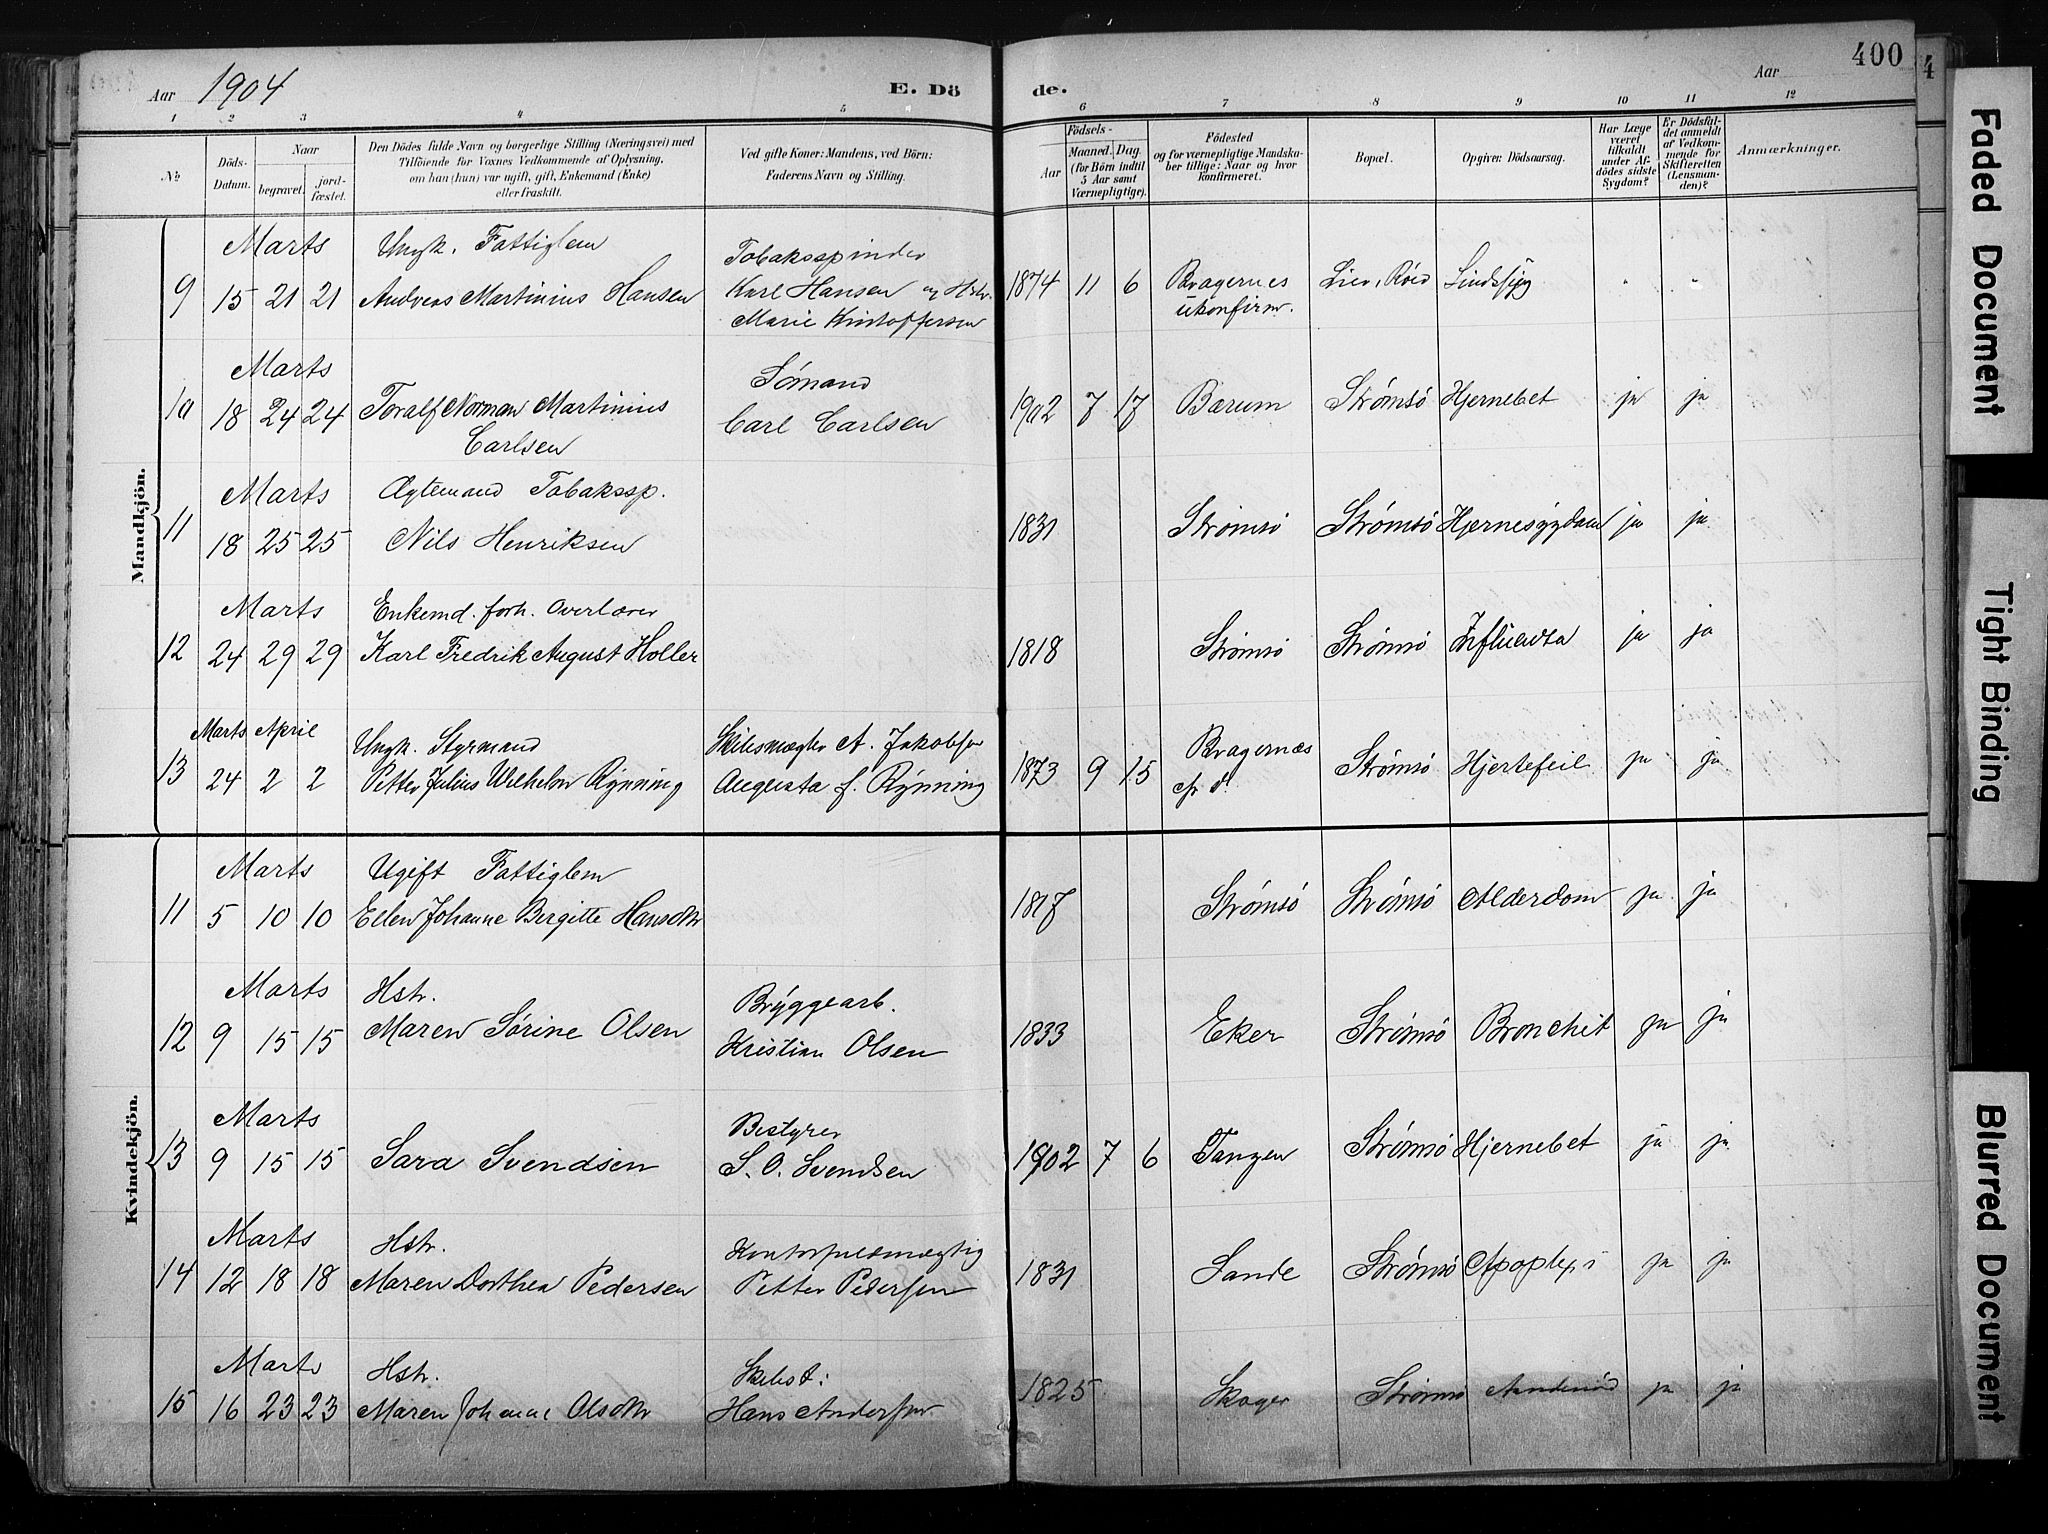 Aar 1904
E. Dö
de.
Aar
400
4
1 2 3 4 5 6 7 8 9 10 11 12
№
Döds-
Datum.
Naar
begravet.
jord-
fæstet.
Den Dödes fulde Navn og borgerlige Stilling (Næringsvei) med
Tilföiende for Voxnes Vedkommende af Oplysning,
om han (hun) var ugift, gift, Enkemand (Enke)
eller fraskilt.
Ved gifte Koner: Mandens, ved Börn:
Faderens Navn og Stilling.
Födsels-
Aar
Maaned. Dag.
(for Börn indtil
5 Aar samt
Værnepligtige).
Födested
og for værnepligtige Mandska-
ber tillige: Naar og hvor
konfirmeret.
Bopæl.
Opgiven Dödsaarsag.
Har Læge
været
tilkaldt
under Af-
dödes sidste
Sygdom?
Er Dödsfal-
det anmeldt
af Vedkom-
mende for
Skifteretten
(Lensman-
den)?
Anmærkninger.
Mandkjön.
Marts Ungk. Fattiglem Tobaksspinder
9 15 21 21 Andreas Martinius Hansen Karl Hansen og Hstr. 1874 11 6 Bragernes Lier, Sindssyg " "
Marie Kristoffersen ukonfirm.
Marts Sømand
10 18 24 24 Toralf Norman Martinius Carl Carlsen 1902 7 17 Bærum Strømsö Hjernebet ja ja
Carlsen
Marts Ægtemand Tobakssp.
11 18 25 25 Nils Henriksen 1831 Strømsö Strømsö Hjernesygdom ja ja
Marts Enkemd. forh. Overlærer
12 24 29 29 Karl Fredrik August Holler 1818 Strømsö Strømsö Influenza ja ja
Marts April Ungk. Styrmand Skibsmægler A. Jakobsen
13 24 2 2 Petter Julius Wilhelm Rynning Augusta f. Rynning 1873 9 15 Bragernæs Strømsö Hjertefeil ja ja
Kvindekjön.
Marts Ugift Fattiglem
11 5 10 10 Ellen Johanne Bergitte Hansdtr 1817 Strømsö Strømsö Alderdom ja ja
Marts Hstr. Bryggearb.
12 9 15 15 Maren Sørine Olsen Kristian Olsen 1833 Eker Strømsö Bronchit ja ja
Marts Bestyrer
13 9 15 15 Sara Svendsen S. O. Svendsen 1902 7 6 Tangen Strømsö Hjernebet ja ja
Marts Hstr. Kontorfuldmægtig
14 12 18 18 Maren Dorthea Pedersen Petter Pedersen 1831 Sande Strømsö Apoplexi ja ja
Marts Hstr. Skibst:
15 16 23 23 Maren Johanne Olsdtr Hans Andersen 1825 Skoger Strømsö Aandenød ja ja
Faded Document
Tight Binding
Blurred Document